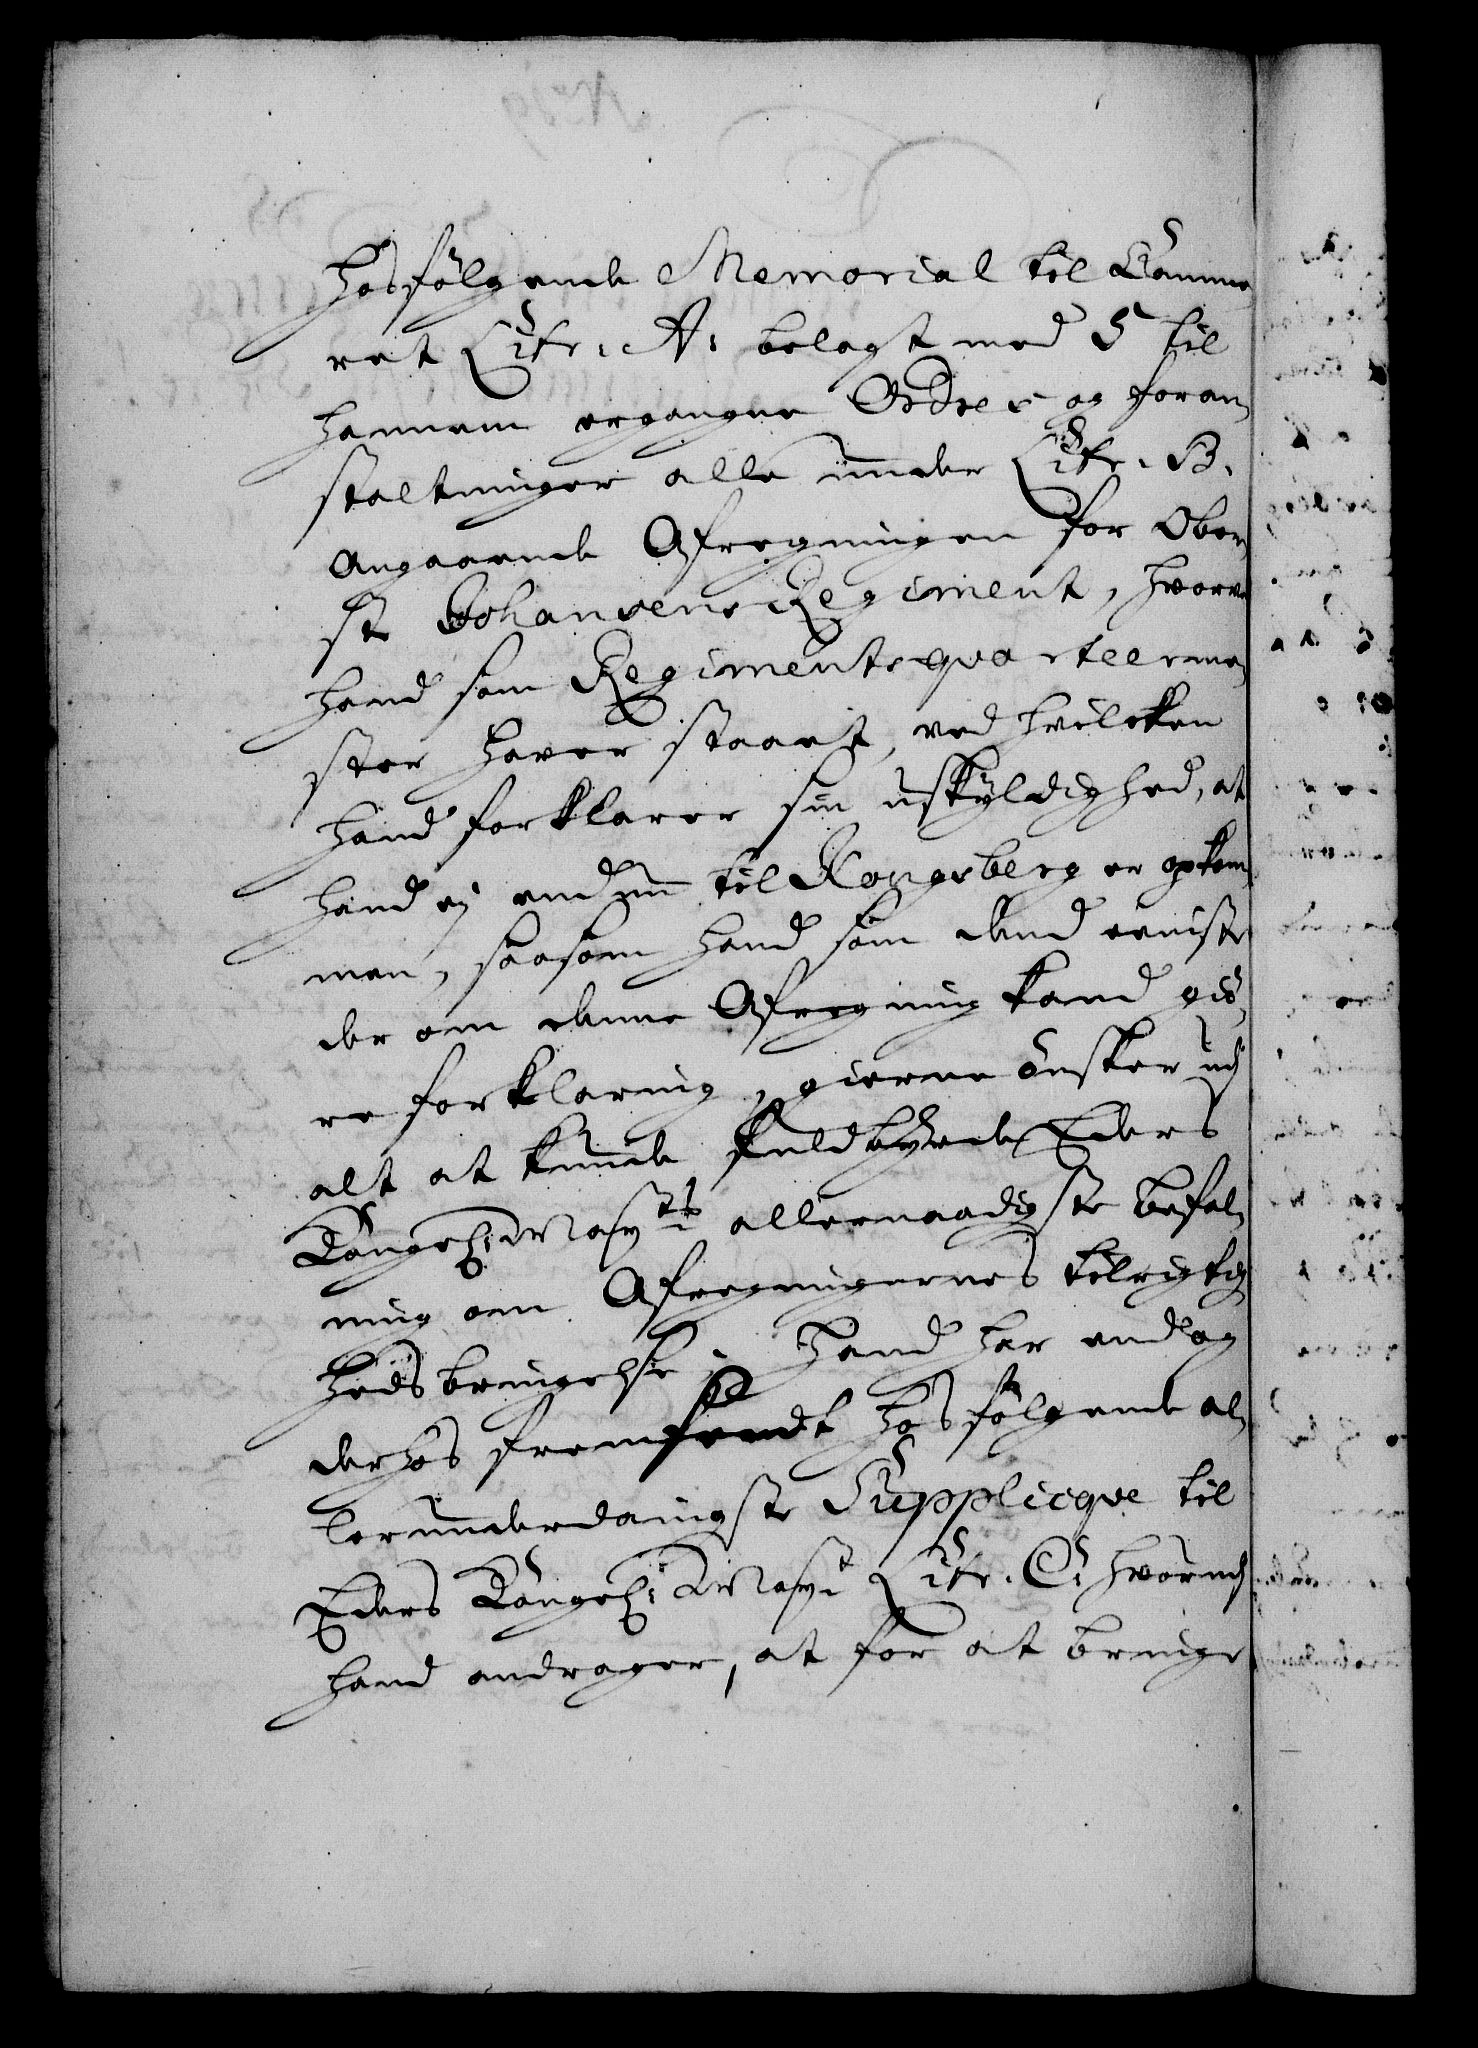 hosfölgende Memorial til Camme
ret Litr. A. belagt med 5 til
hannem ergangne Ordres og foran,
staltninger alle under Litr. B.
angaaende Afregningen for Ober,
ste Johansens Regiment, hvorved
hand som Regimentsqvarteerme,
ster haver staaet, ved hvilcken
hand forklarer sin uskÿldighed, at
hand ej endnu til Kongsberg er opkom,
men, saasom hand som dend eeniste
der om denne Afregning kand giö,
re forklaring, gierne önsker udj
alt at kunde fuldbÿrde Eders
Kongel: Mayts allernaadigste befal,
ning om Afregningernes tilrigtig
heds bringelse; Hand har endog
derhos fremsendt hosfölgende al,
lerunderdanigste Supplicqve til
Eders Kongel: Mayt Litr. C. hvorudj
hand andrager, at for at bringe